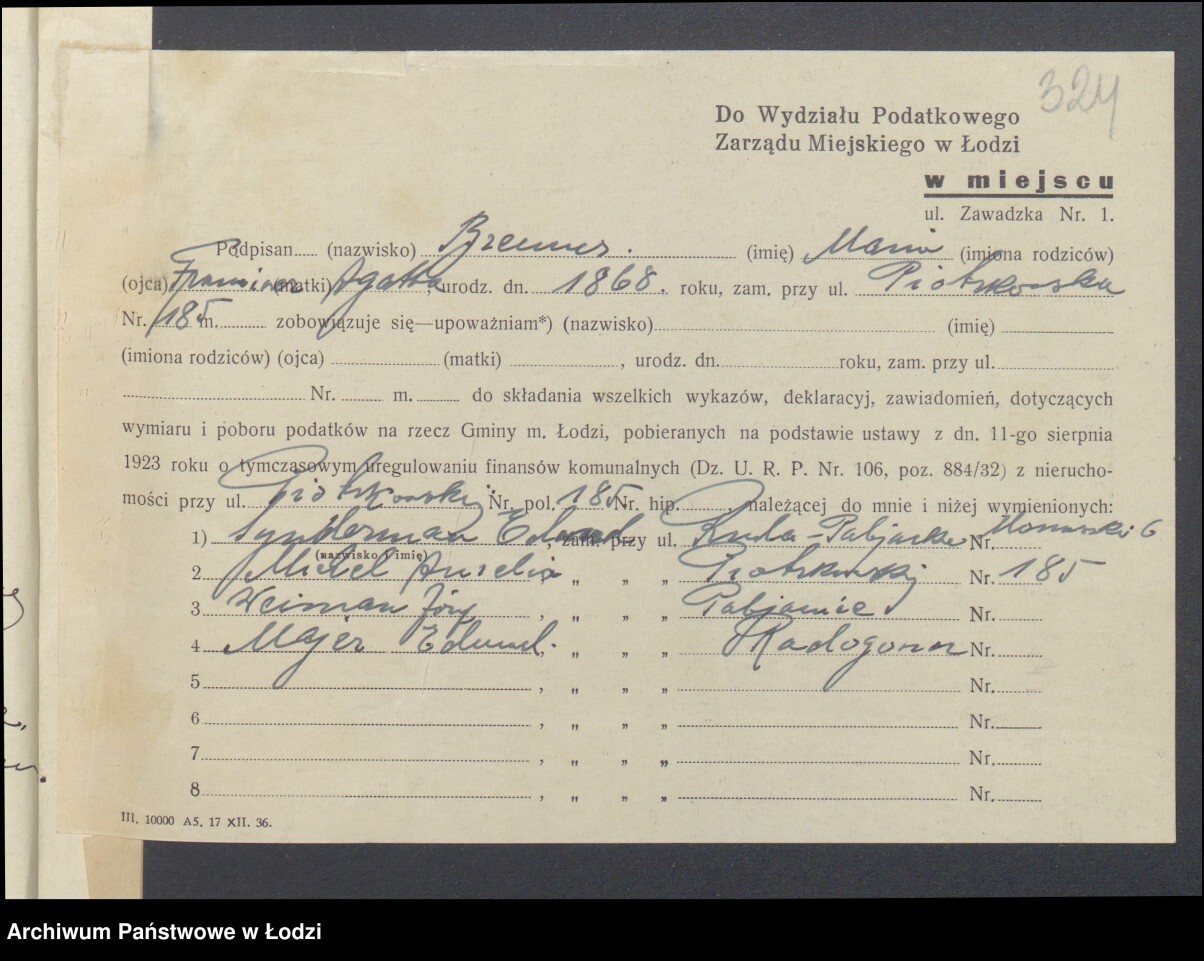 324
Do Wydziału Podatkowego
Zarządu Miejskiego w Łodzi
w miejscu
ul. Zawadzka Nr. 1.
Podpisan (nazwisko) Brenner. (imię) Maria (imiona rodziców)
(ojca) (matki) Agatha, urodz. dn. 1868. roku, zam. przy ul. Piotrkowska
Nr. 185 m. zobowiązuje się—upoważniam*) (nazwisko) (imię)
(imiona rodziców) (ojca) (matki) , urodz. dn. roku, zam. przy ul.
Nr. m. do składania wszelkich wykazów, deklaracyj, zawiadomień, dotyczących
wymiaru i poboru podatków na rzecz Gminy m. Łodzi, pobieranych na podstawie ustawy z dn. 11-go sierpnia
1923 roku o tymczasowym uregulowaniu finansów komunalnych (Dz. U. R. P. Nr. 106, poz. 884/32) z nierucho-
mości przy ul. Piotrkowskiej Nr. pol. 185 Nr. hip. , należącej do mnie i niżej wymienionych:
1) , zam. przy ul. Ruda-Pabjanicka Nr. 6
(nazwisko i imię)
2 Michel Aurelia „ „ „ Piotrkowskiej Nr. 185
3 Weiman , „ „ „ Pabjanice Nr.
4 Majer Edward , „ „ „ Radogoszcz Nr.
5 , „ „ „ Nr.
6 , „ „ „ Nr.
7 , „ „ „ Nr.
8 , „ „ „ Nr.
III. 10000 A5. 17 XII. 36.
Archiwum Państwowe w Łodzi